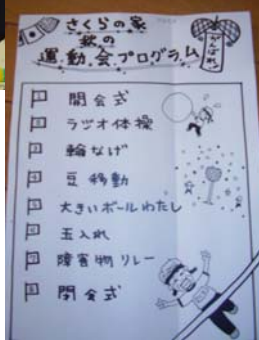 さくらの家
秋の
運動会プログラム
がんばれ
開会式
ラジオ体操
輪なげ
豆移動
大きいボールわたし
玉入れ
障害物リレー
閉会式